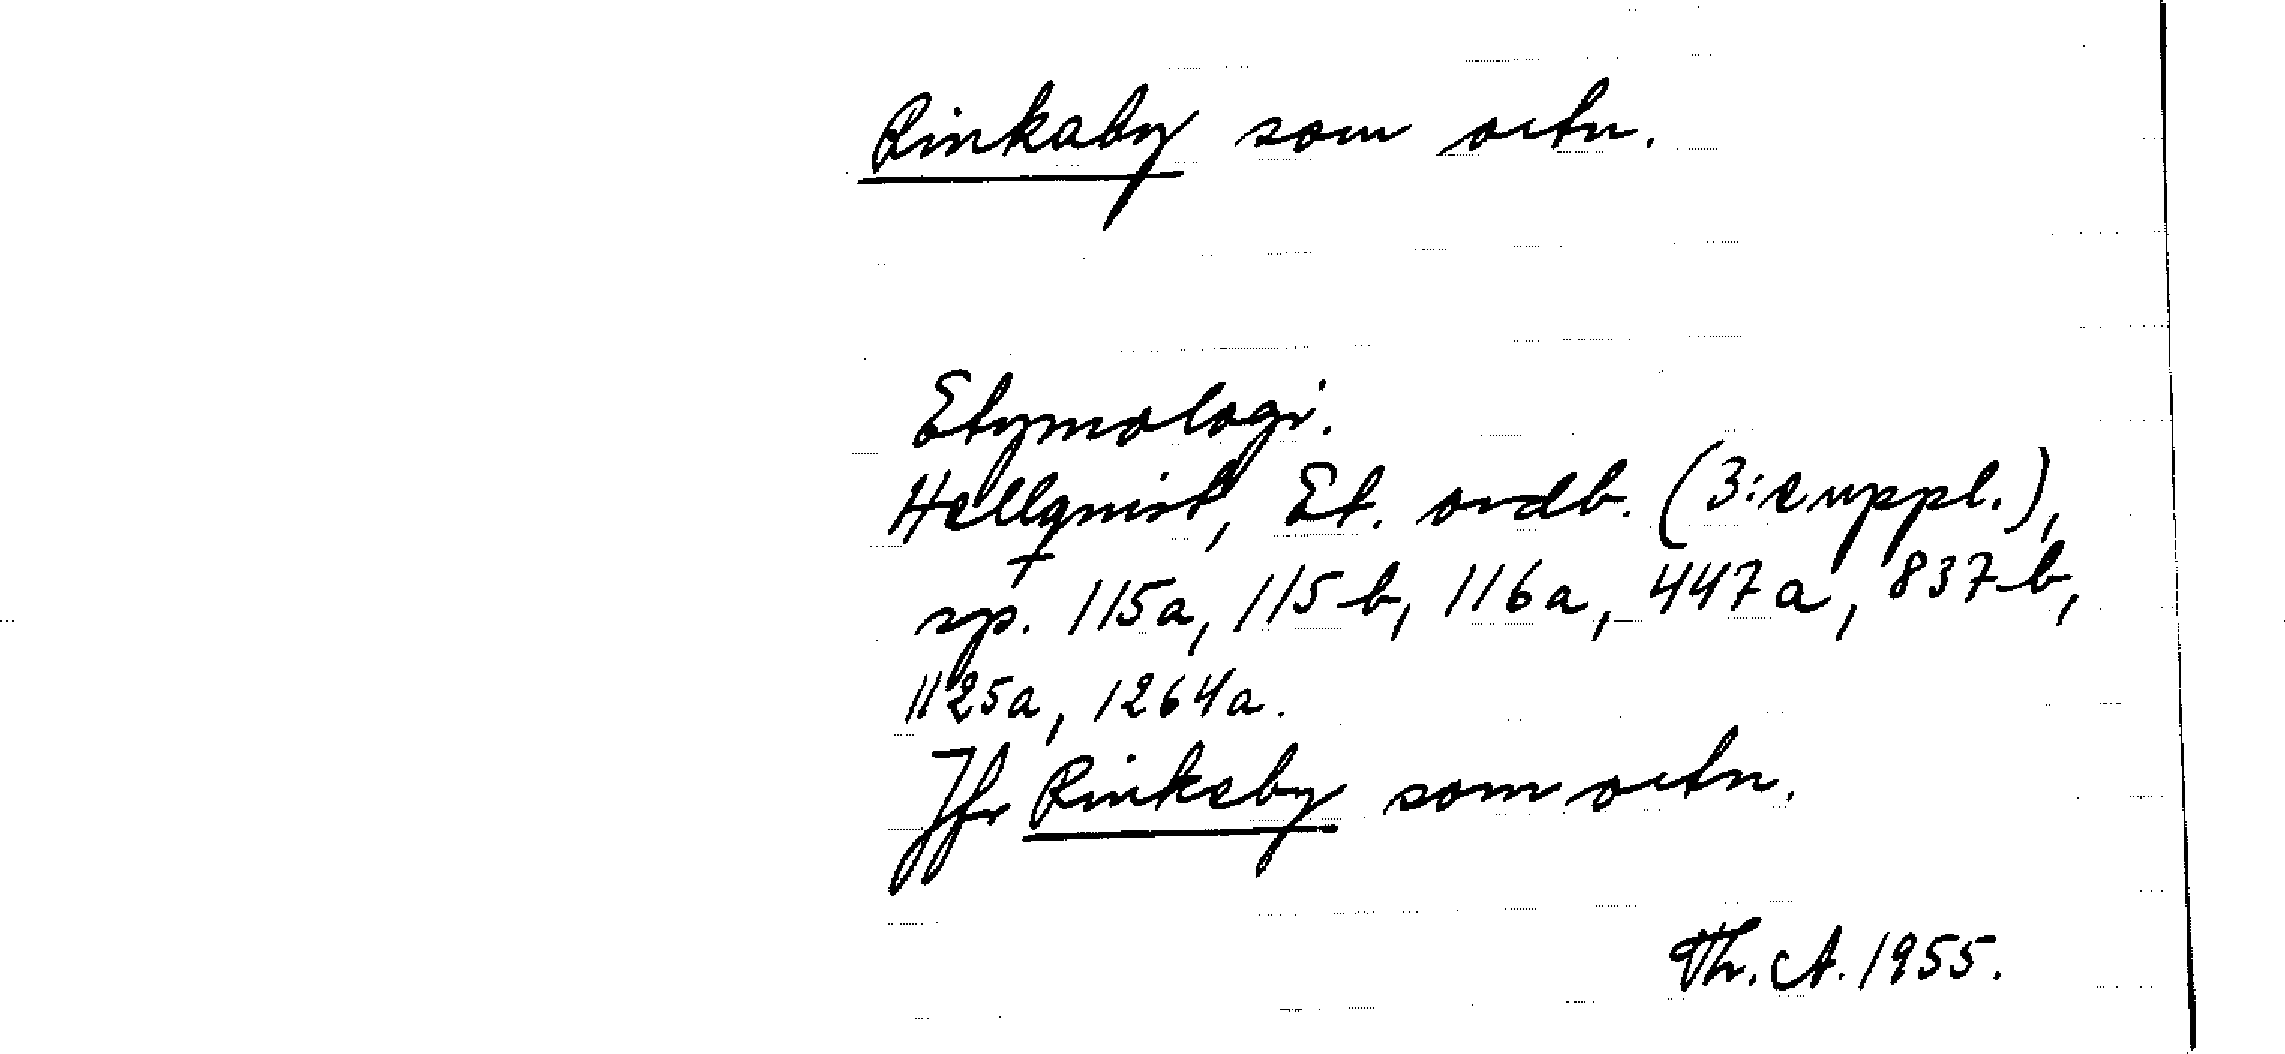 Rinkaby som ortn.
Etymologi.
Hellquist, Et. ordb. (3:e uppl.),
sp. 115a, 115b, 116a, 447a, 837b,
1125a, 1264a.
Jfr Rinkeby som ortn.
Th. A. 1955.